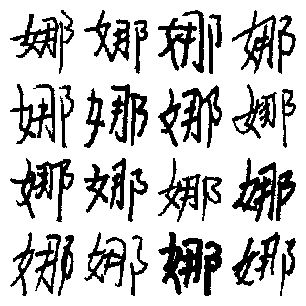 娜娜娜娜
娜娜娜娜
娜娜娜娜
娜娜娜娜